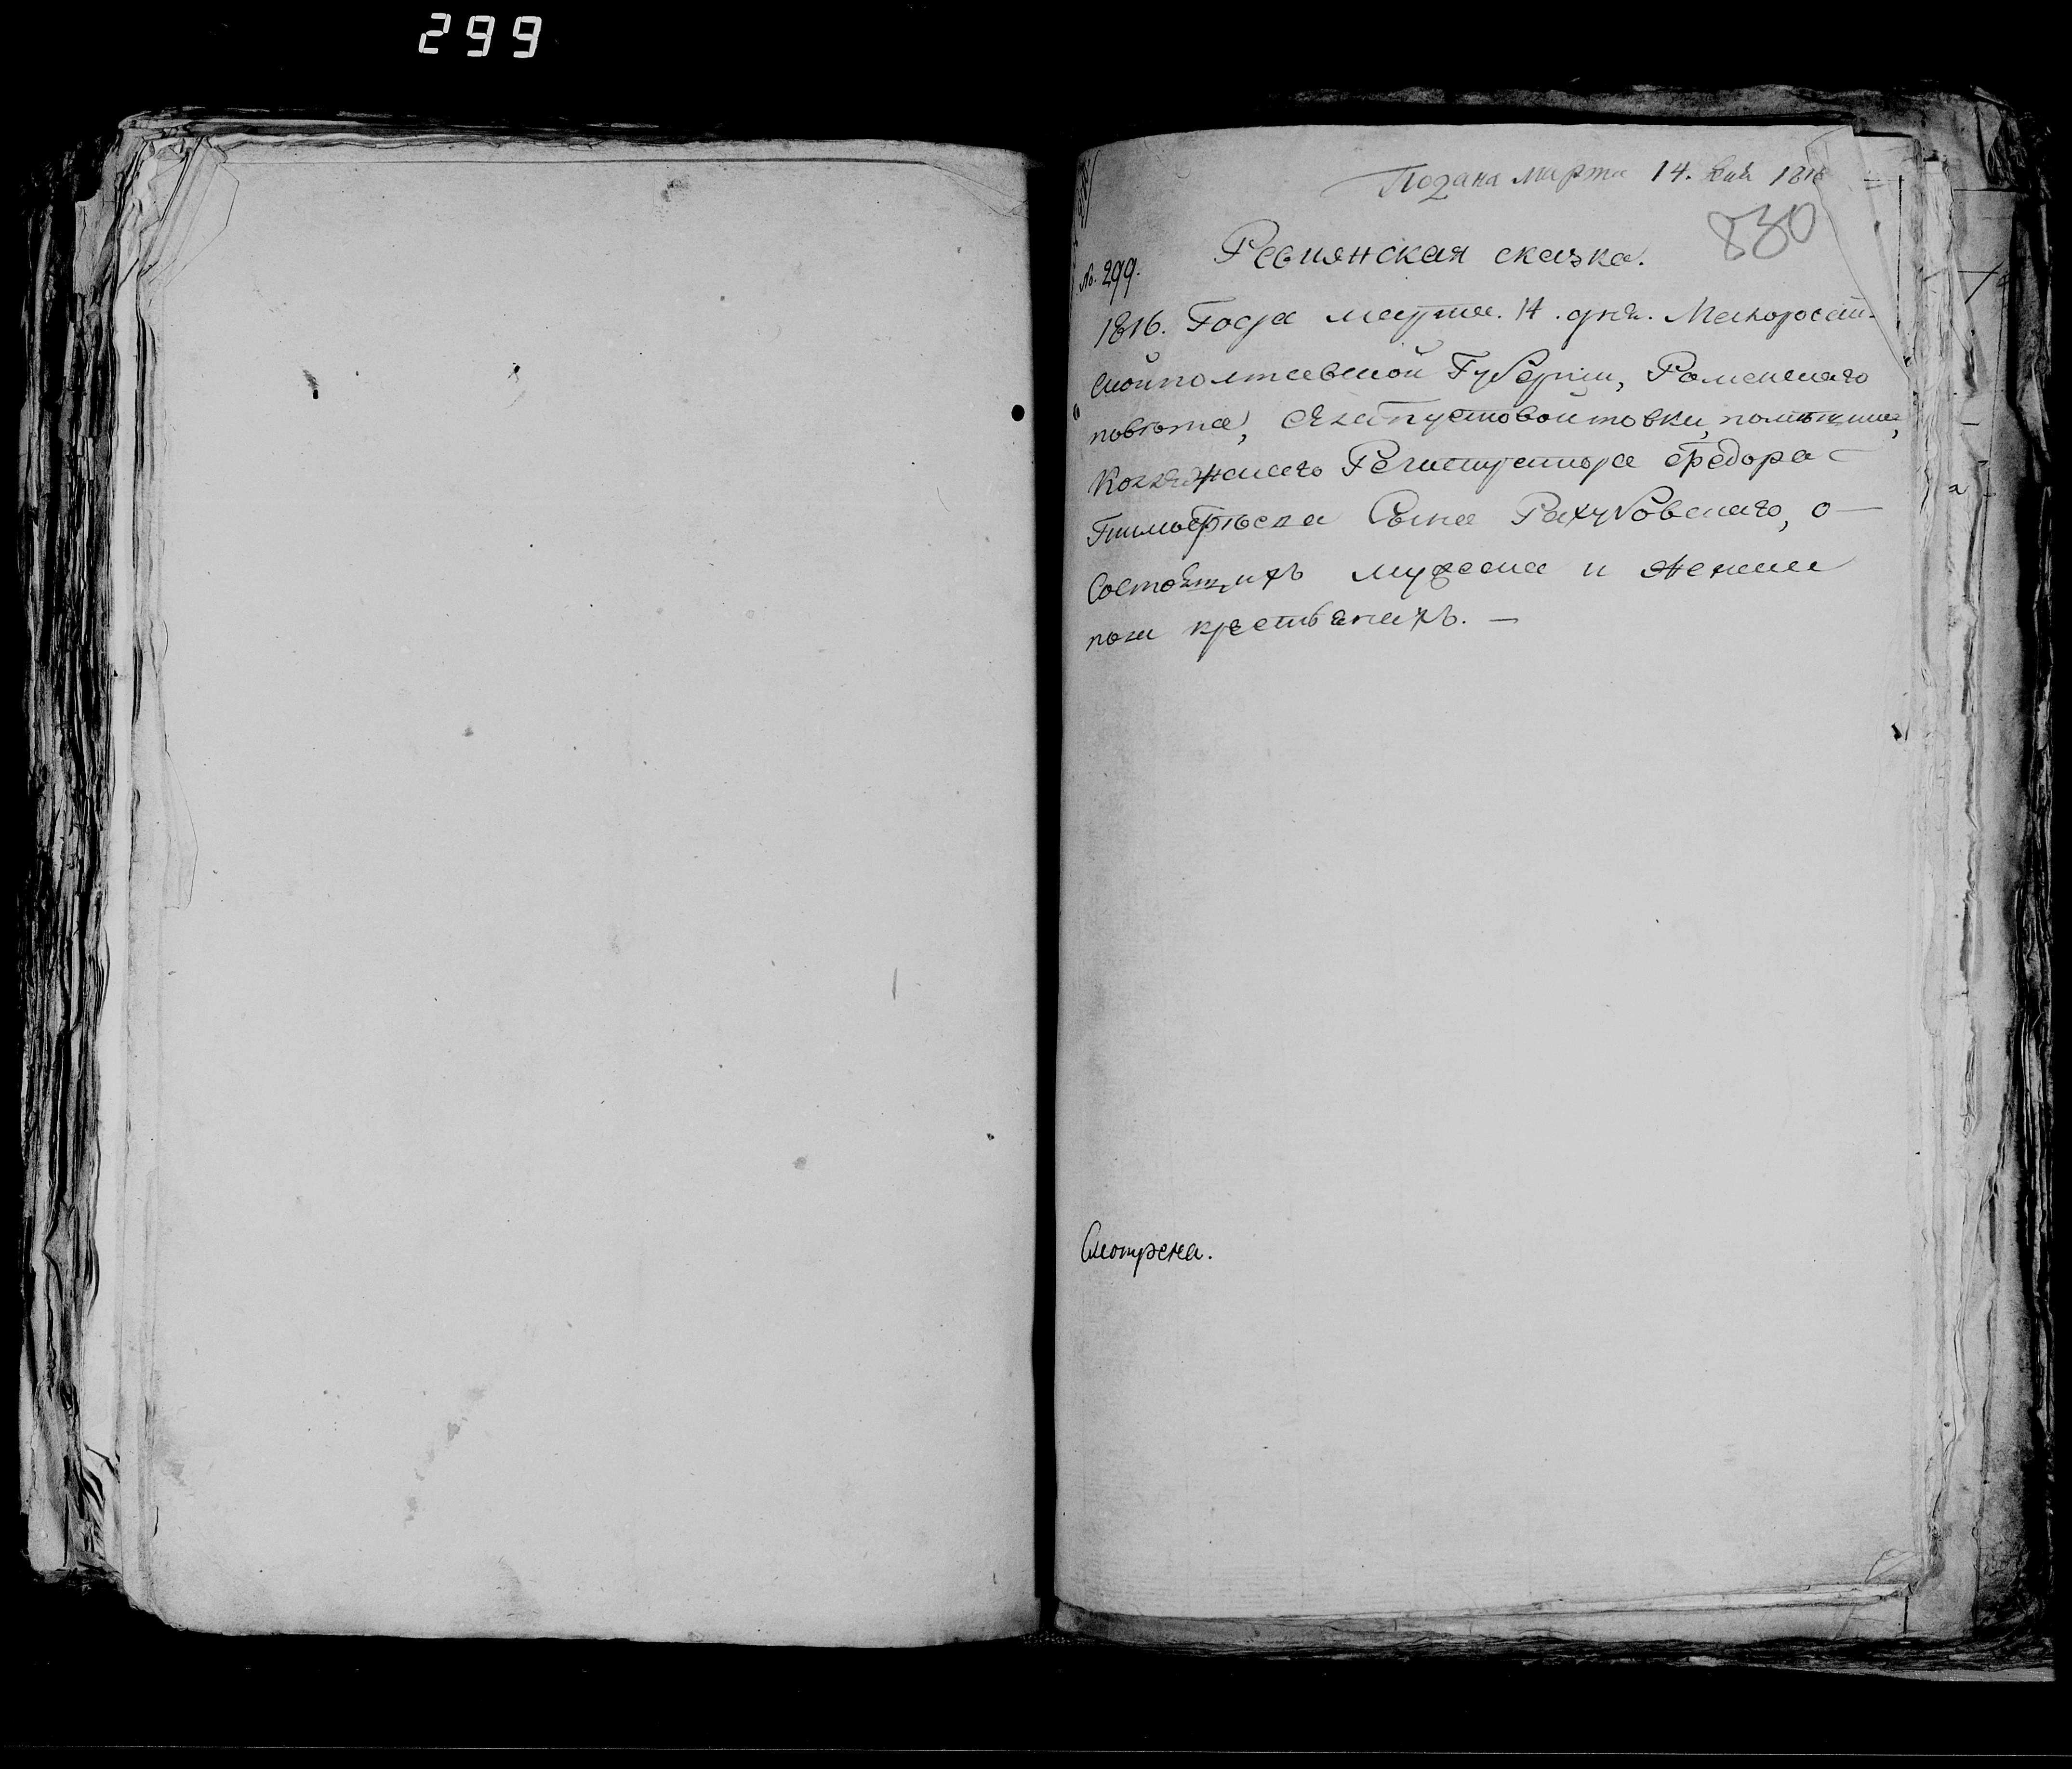 299
Подана марта 14. дня 1816
830
№. 299.
Ревизская сказка.
1816. Года марта. 14. дня. Малоросій-
ской полтавской Губерніи, Роменскаго
повѣта, села Пустовойтовки, помѣщика,
Коллежскаго Регистратора Федора
Тимофѣева Сына Рахубовскаго, о
Состоящихъ мужеска и женска
пола крестьянахъ. —
Смотрена.